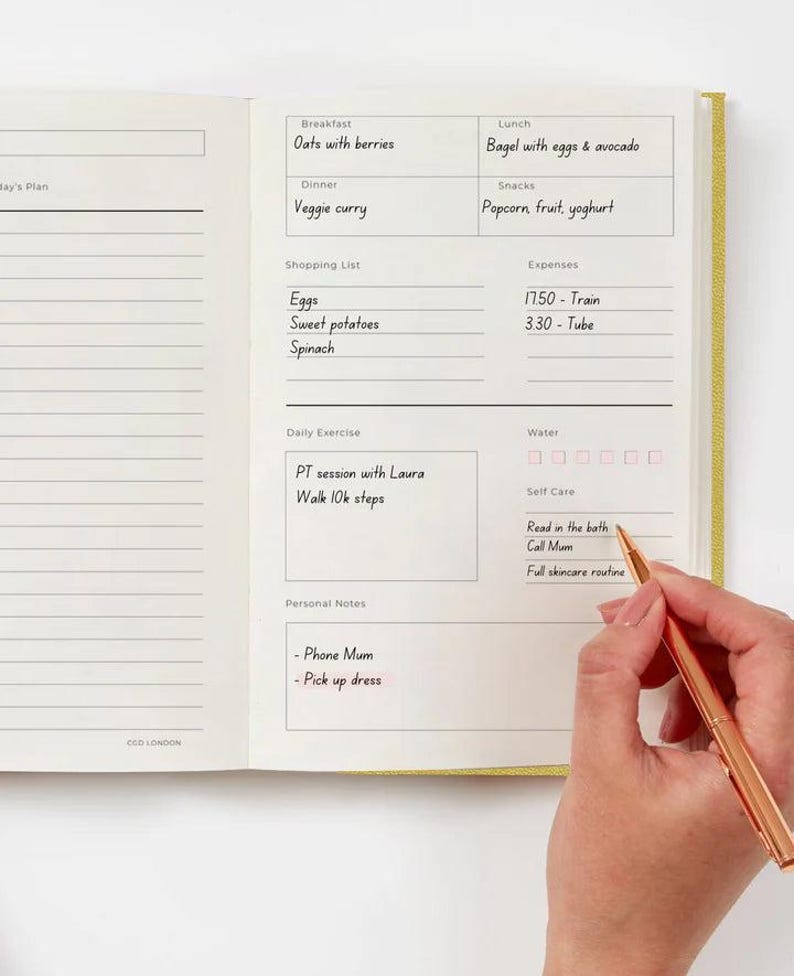 day's Plan
CGD LONDON
Breakfast
Oats with berries
Lunch
Bagel with eggs & avocado
Dinner
Veggie curry
Snacks
Popcorn, fruit, yoghurt
Shopping List
Eggs
Sweet potatoes
Spinach
Expenses
17.50 - Train
3.30 - Tube
Daily Exercise
PT session with Laura
Walk 10k steps
Water
Self Care
Read in the bath
Call Mum
Full skincare routine
Personal Notes
- Phone Mum
- Pick up dress